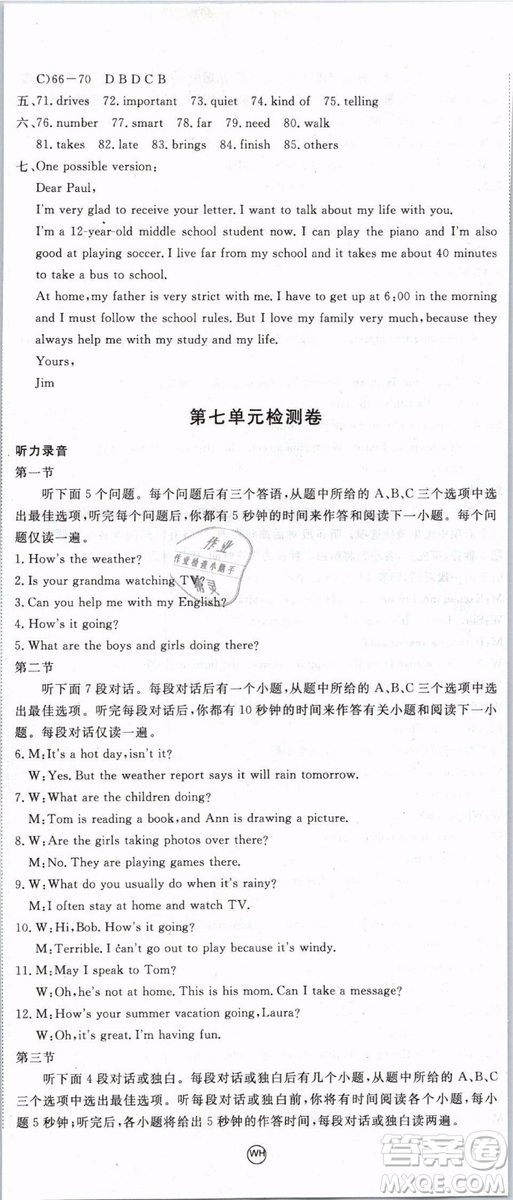 C)66－70　D B D C B
五、71. drives　72. important　73. quiet　74. kind of　75. telling
六、76. number　77. smart　78. far　79. need　80. walk
81. takes　82. late　83. brings　84. finish　85. others
七、One possible version:
Dear Paul,
I'm very glad to receive your letter. I want to talk about my life with you.
I'm a 12-year-old middle school student now. I can play the piano and I'm also
good at playing soccer. I live far from my school and it takes me about 40 minutes
to take a bus to school.
At home, my father is very strict with me. I have to get up at 6:00 in the morning
and I must follow the school rules. But I love my family very much, because they
always help me with my study and my life.
Yours,
Jim
第七单元检测卷
听力录音
第一节
听下面 5 个问题。每个问题后有三个答语，从题中所给的 A、B、C 三个选项中选
出最佳选项。听完每个问题后，你都有 5 秒钟的时间来作答和阅读下一小题。每个问
题仅读一遍。
1. How's the weather?
2. Is your grandma watching TV?
3. Can you help me with my English?
4. How's it going?
5. What are the boys and girls doing there?
第二节
听下面 7 段对话。每段对话后有一个小题，从题中所给的 A、B、C 三个选项中选
出最佳选项。听完每段对话后，你都有 10 秒钟的时间来作答有关小题和阅读下一小
题。每段对话仅读一遍。
6. M:It's a hot day,isn't it?
W:Yes. But the weather report says it will rain tomorrow.
7. W:What are the children doing?
M:Tom is reading a book,and Ann is drawing a picture.
8. W:Are the girls taking photos over there?
M:No. They are playing games there.
9. W:What do you usually do when it's rainy?
M:I often stay at home and watch TV.
10. W:Hi,Bob. How's it going?
M:Terrible. I can't go out to play because it's windy.
11. M:May I speak to Tom?
W:Oh,he's not at home. This is his mom. Can I take a message?
12. M:How's your summer camping going,Laura?
W:Oh,it's great. I'm having fun.
第三节
听下面 4 段对话或独白。每段对话或独白后有几个小题，从题中所给的 A、B、C
三个选项中选出最佳选项。听每段对话或独白前，你将有时间阅读各个小题，每小
题 5 秒钟；听完后，各小题将给出 5 秒钟的作答时间，每段对话或独白读两遍。
WH
作业
作业检查小助手
答案卷
MXQE.COM